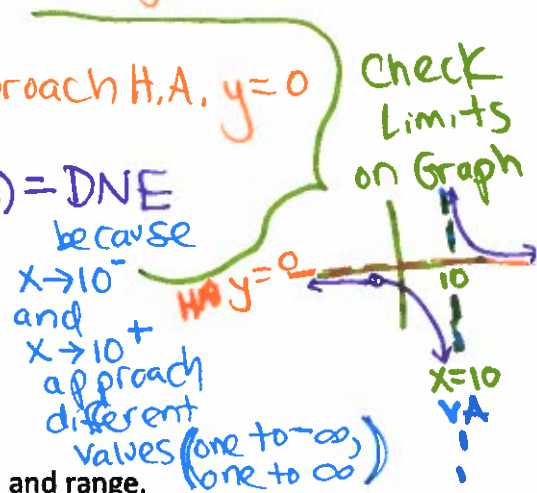 roach H.A. y=0
Check
Limits
on Graph
) = DNE
because
x→10⁻
and
x→10⁺
approach
different
values (one to -∞,
one to ∞)
HA y=0
10
x=10
VA
and range.